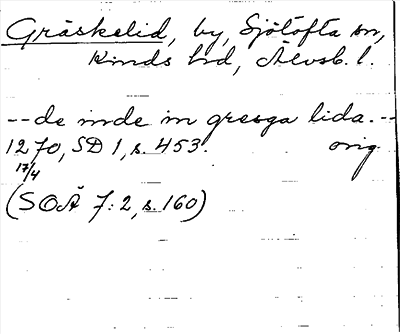 Gräskelid, by, Sjötofta sn,
Kinds hd, Älvsb. l.
-- de inde in gresga lida. --
1270, SD 1, s. 453. orig
17/4
(SOÄ 7:2, s. 160)